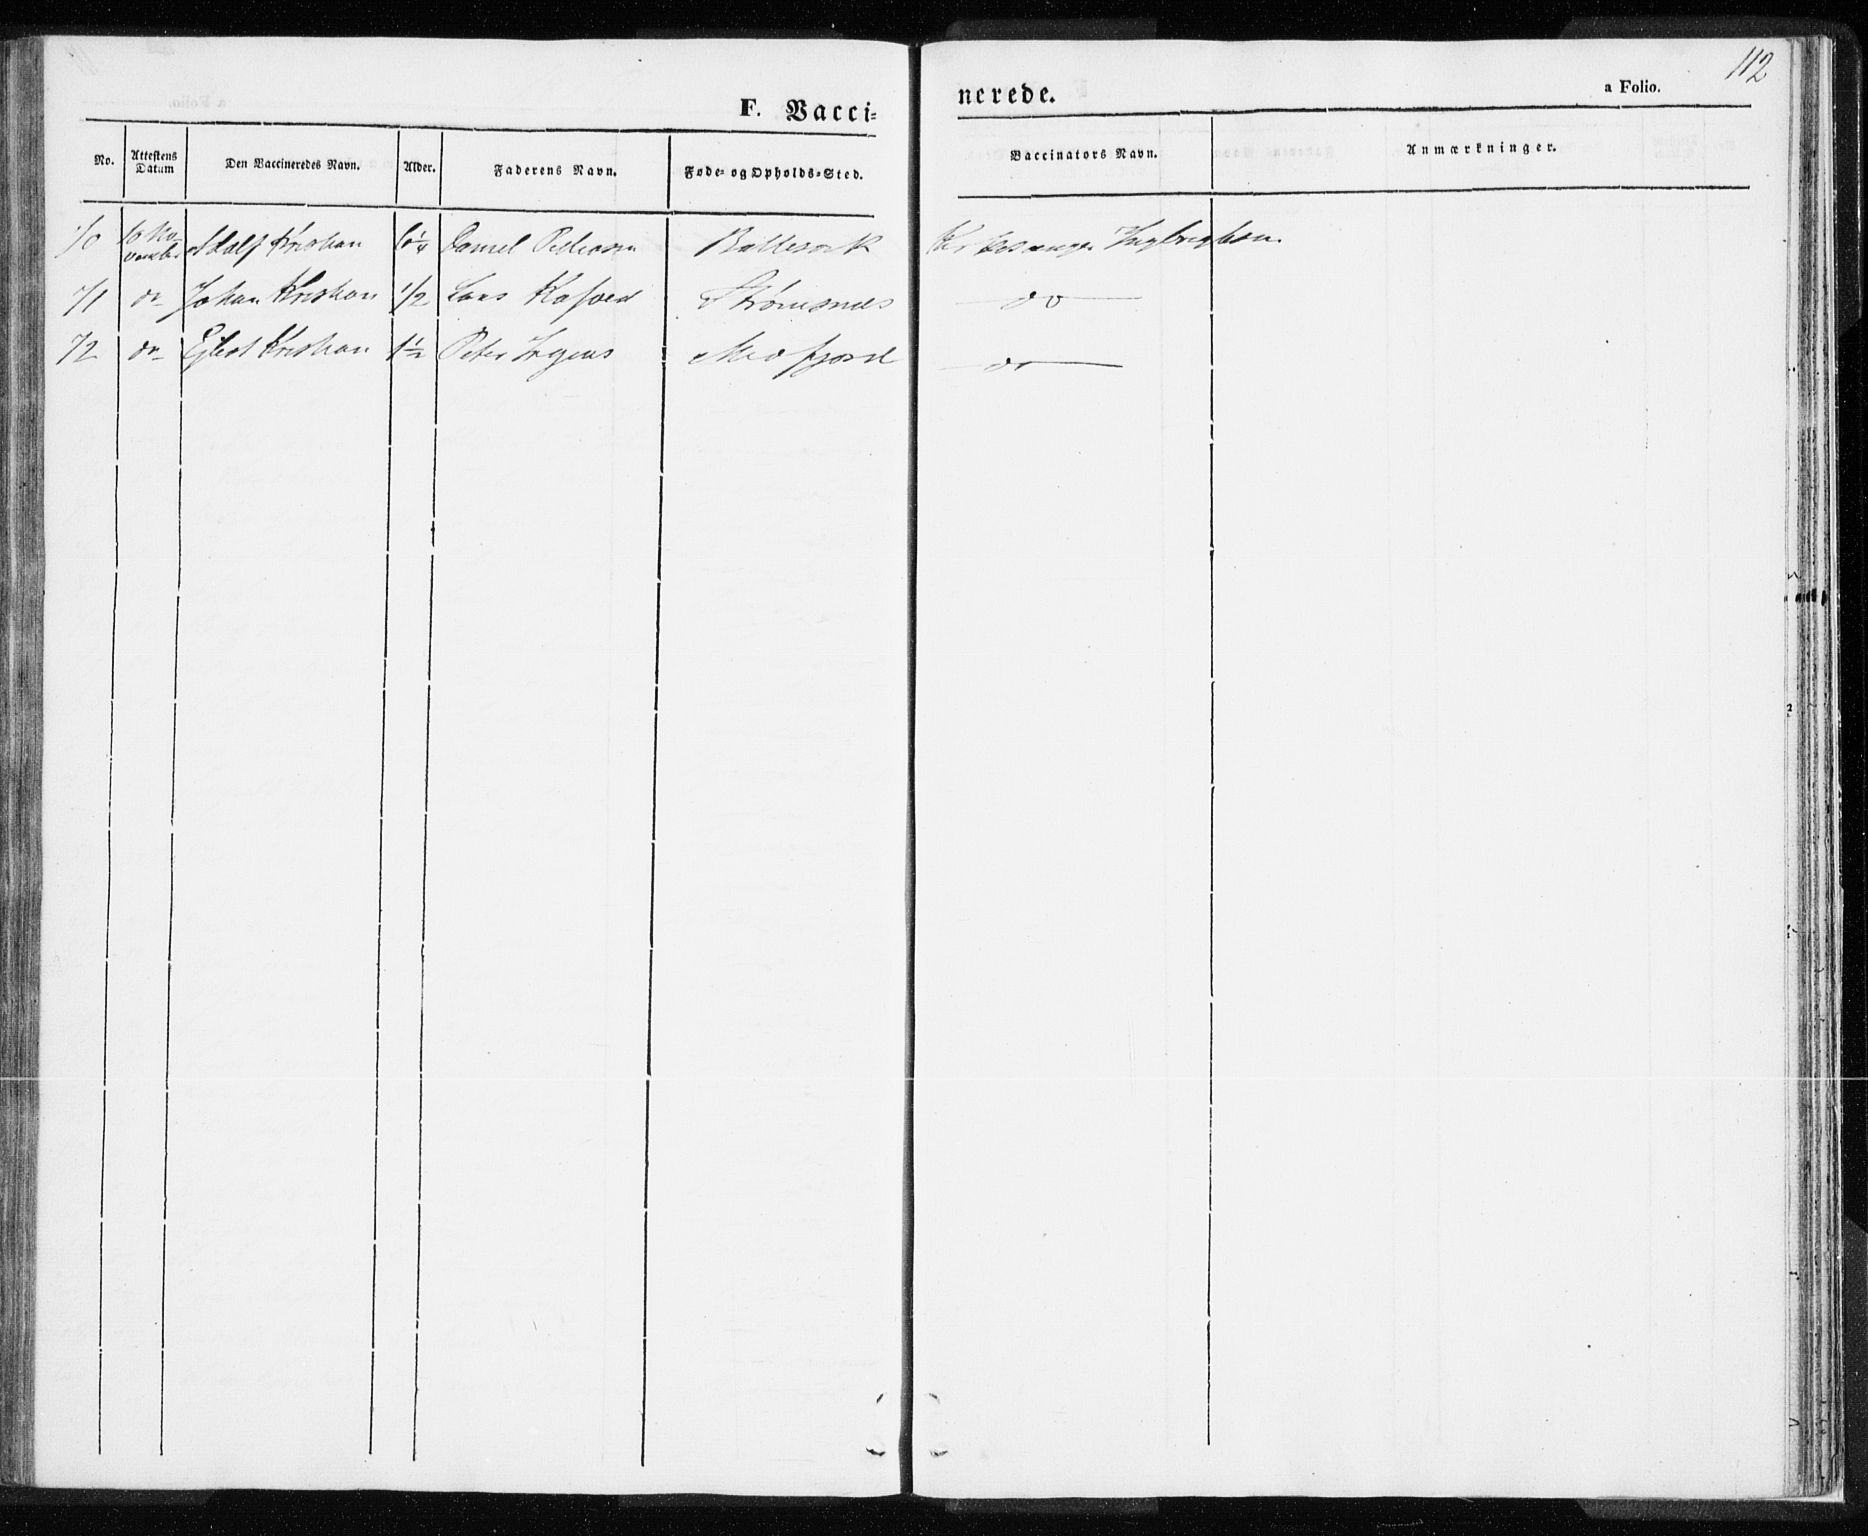 112
F. Vaccinerede.
a Folio.
No. Attestens Datum Den Vaccineredes Navn. Alder. Faderens Navn. Føde- og Opholds-Sted. Vaccinators Navn. Anmærkninger.
70 10 November Adolf Kristian 6¼ Daniel Pedersen Ballesvik Kirkesanger Ingbrigtsen
71 do Johan Kristian 1/2 Lars Kofoed Strømsnæs do
72 do Eilert Kristian 1½ Peter Medfjord do